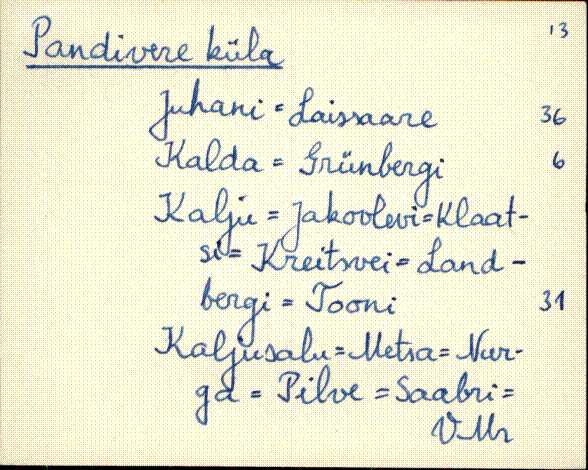 13
Pandivere küla
Juhani = Laissaare 36
Kalda = Grünbergi 6
Kalju = Jakovlevi = Klaat-
si = Kreitsvei = Land-
bergi = Tooni 31
Kaljusalu = Metsa = Nur-
ga = Pilve = Saabri =
VMr